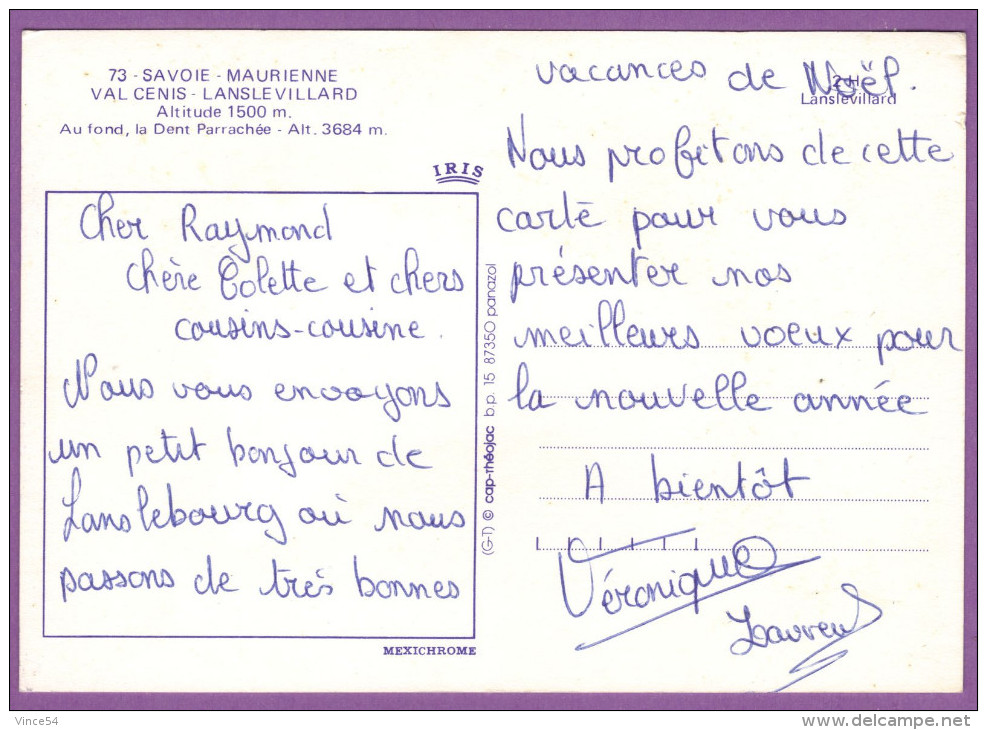 73 - SAVOIE - MAURIENNE
VAL CENIS - LANSLEVILLARD
Altitude 1500 m.
Au fond, la Dent Parrachée - Alt. 3684 m.
IRIS
Cher Raymond
Chère Colette et chers
cousins-cousine.
Nous vous envoyons
un petit bonjour de
Lanslebourg où nous
passons de très bonnes
MEXICHROME
(G-T) © cap-théojac b.p. 15 87350 panazol
vacances de Noël.
Lanslevillard
Nous profitons de cette
carte pour vous
présenter nos
meilleurs voeux pour
la nouvelle année
A bientôt
Véronique
Laurent
Vince54
www.delcampe.net